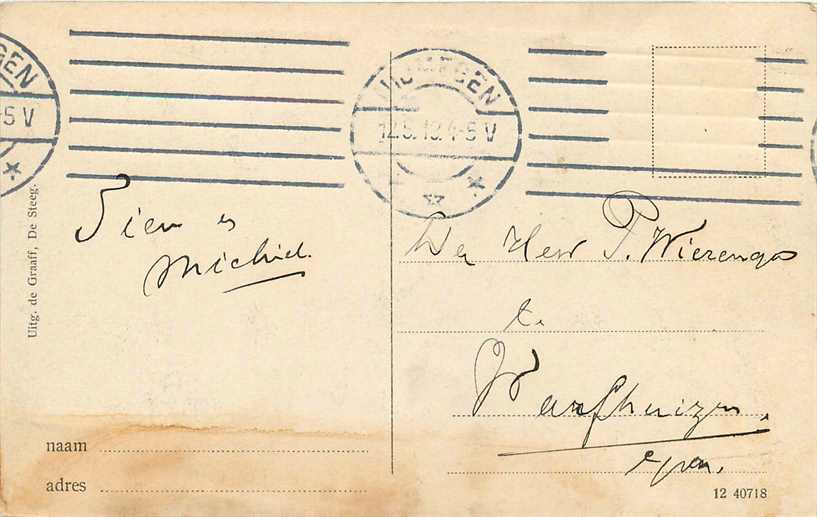 GEN
-5 V
NIJMEGEN
12.5.13.4-5 V
Uitg. de Graaff, De Steeg.
Sien en
Michiel.
Den Heer P. Wierenga
te
Warfhuizen.
naam
adres
12 40718